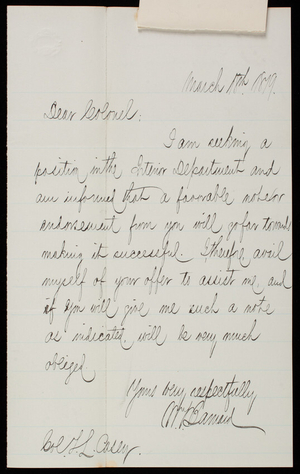 March 17th 1879.
Dear Colonel:
I am seeking a
position in the Interior Department and
am informed that a favorable note or
endorsement from you will go far towards
making it successful. I therefore avail
myself of your offer to assist me, and
if you will give me such a note
as indicated, will be very much
obliged
Yours very respectfully
Wm
Col. T. L. Casey.